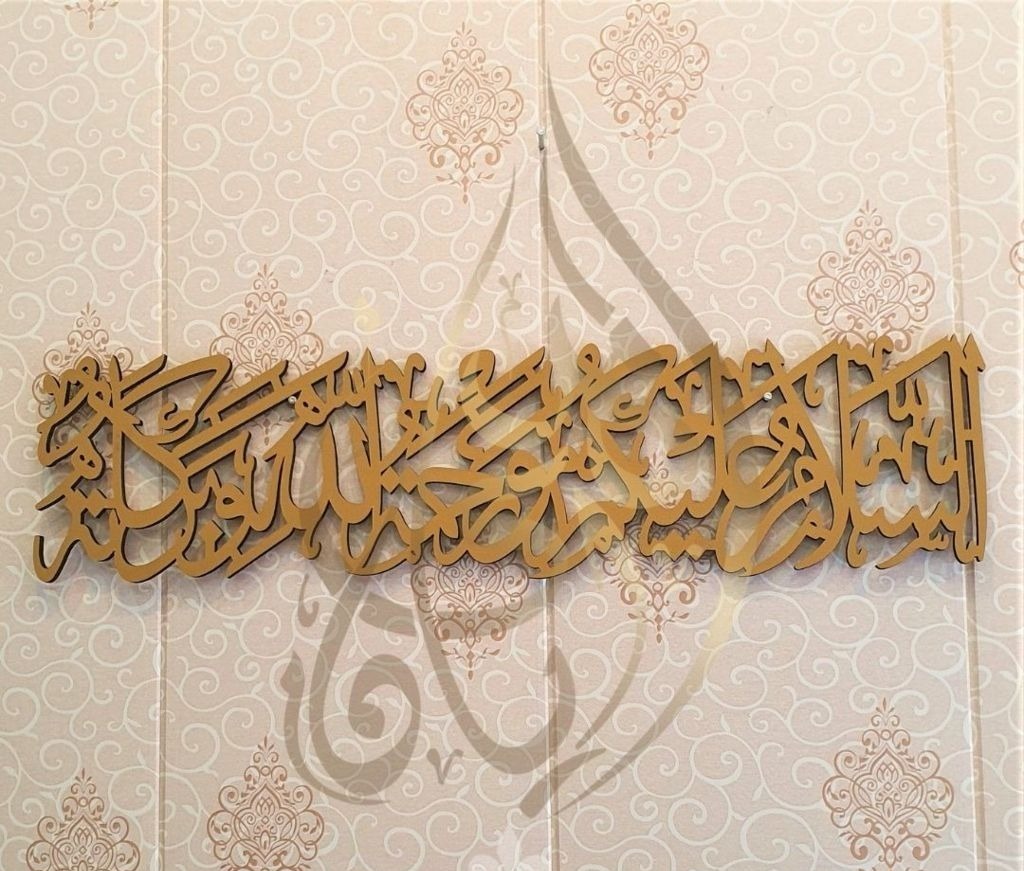 السلام عليكم ورحمة الله وبركاته